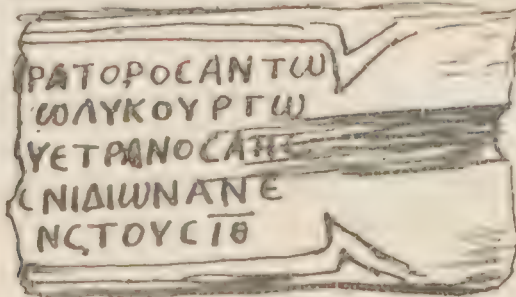 ΡΑΤΟΡΟСΑΝΤω
ωΛΥΚΟΥΡΓω
ΥΕΤΡΑΝΟСΑΠΕ
СΝΙΔΙωΝΑΝΕ
ΝϚΤΟΥСΙΘ